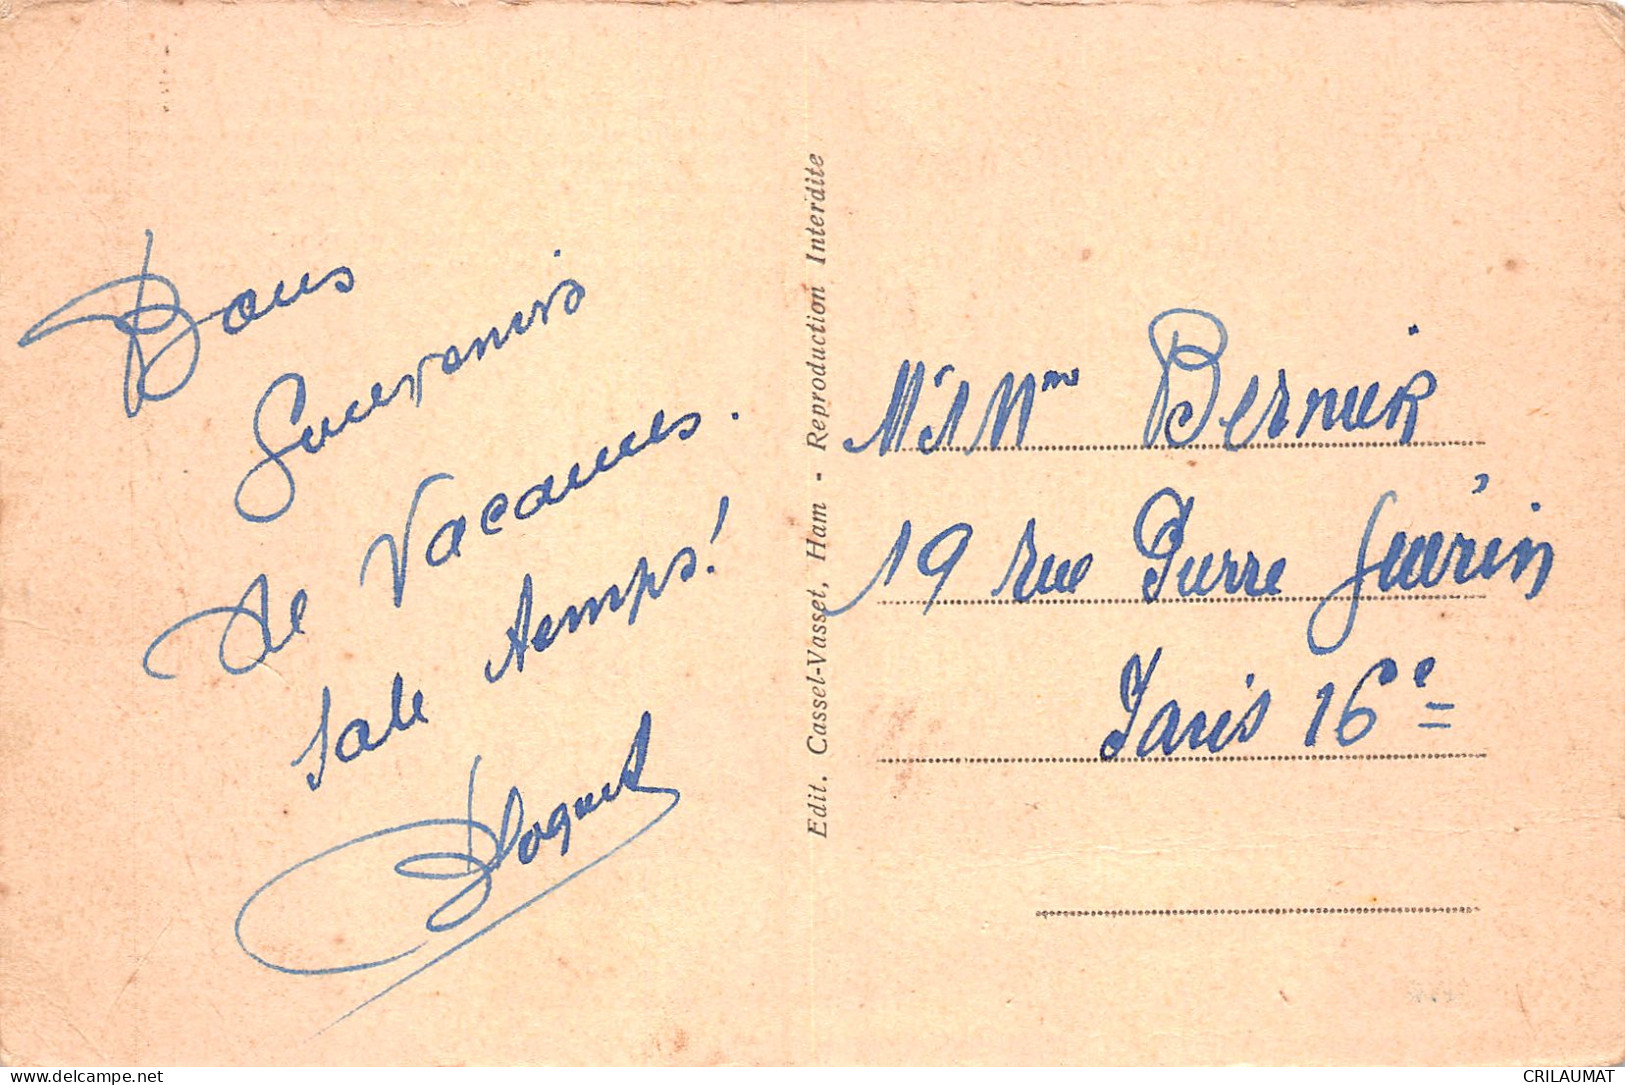 Bons
Souvenirs
de Vacances.
sale temps!
Edit. Cassel-Vasset, Ham - Reproduction Interdite
Mr & Mme Bernier
19 rue Pierre Guérin
Paris 16e
www.delcampe.net
CRILAUMAT